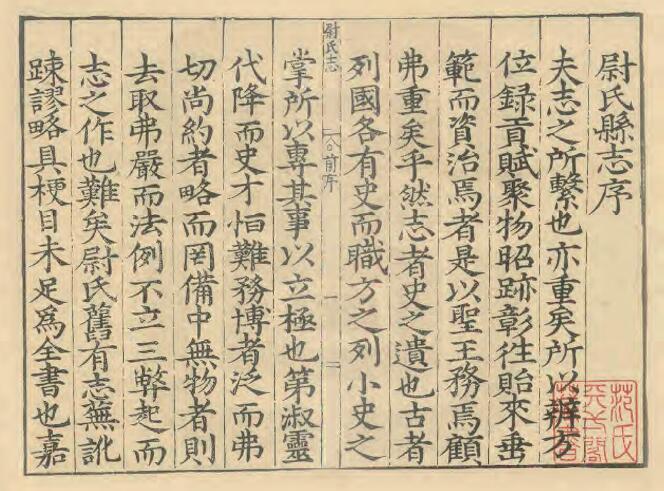 尉氏縣志序
夫志之所繫也亦重矣所以辨方
位録貢賦聚物昭跡彰徃貽來垂
範而資治焉者是以聖王務焉顧
弗重矣乎然志者史之遺也古者
列國各有史而職方之列小史之
尉氏志
前序
一
掌所以專其事以立極也第淑靈
代降而史才恒難務博者泛而弗
切尚約者略而罔備中無物者則
去取弗嚴而法例不立三弊起而
志之作也難矣尉氏舊有志蕪訛
踈謬略具梗目未足爲全書也嘉
范氏
天一閣
藏書